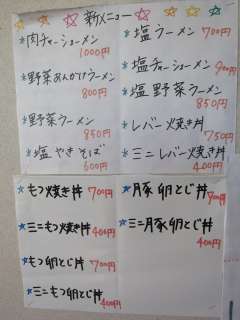 新メニュー
*肉チャーシューメン
1000円
*野菜あんかけラーメン
800円
*野菜ラーメン
850円
*塩やきそば
600円
*塩ラーメン 700円
*塩チャーシューメン
900円
*塩野菜ラーメン
850円
*レバー焼き丼
750円
*ミニレバー焼き丼
400円
★もつ焼き丼 700円
★ミニもつ焼き丼
400円
★もつ卵とじ丼
700円
★ミニもつ卵とじ丼
400円
★豚卵とじ丼
700円
★ミニ豚卵とじ丼
400円